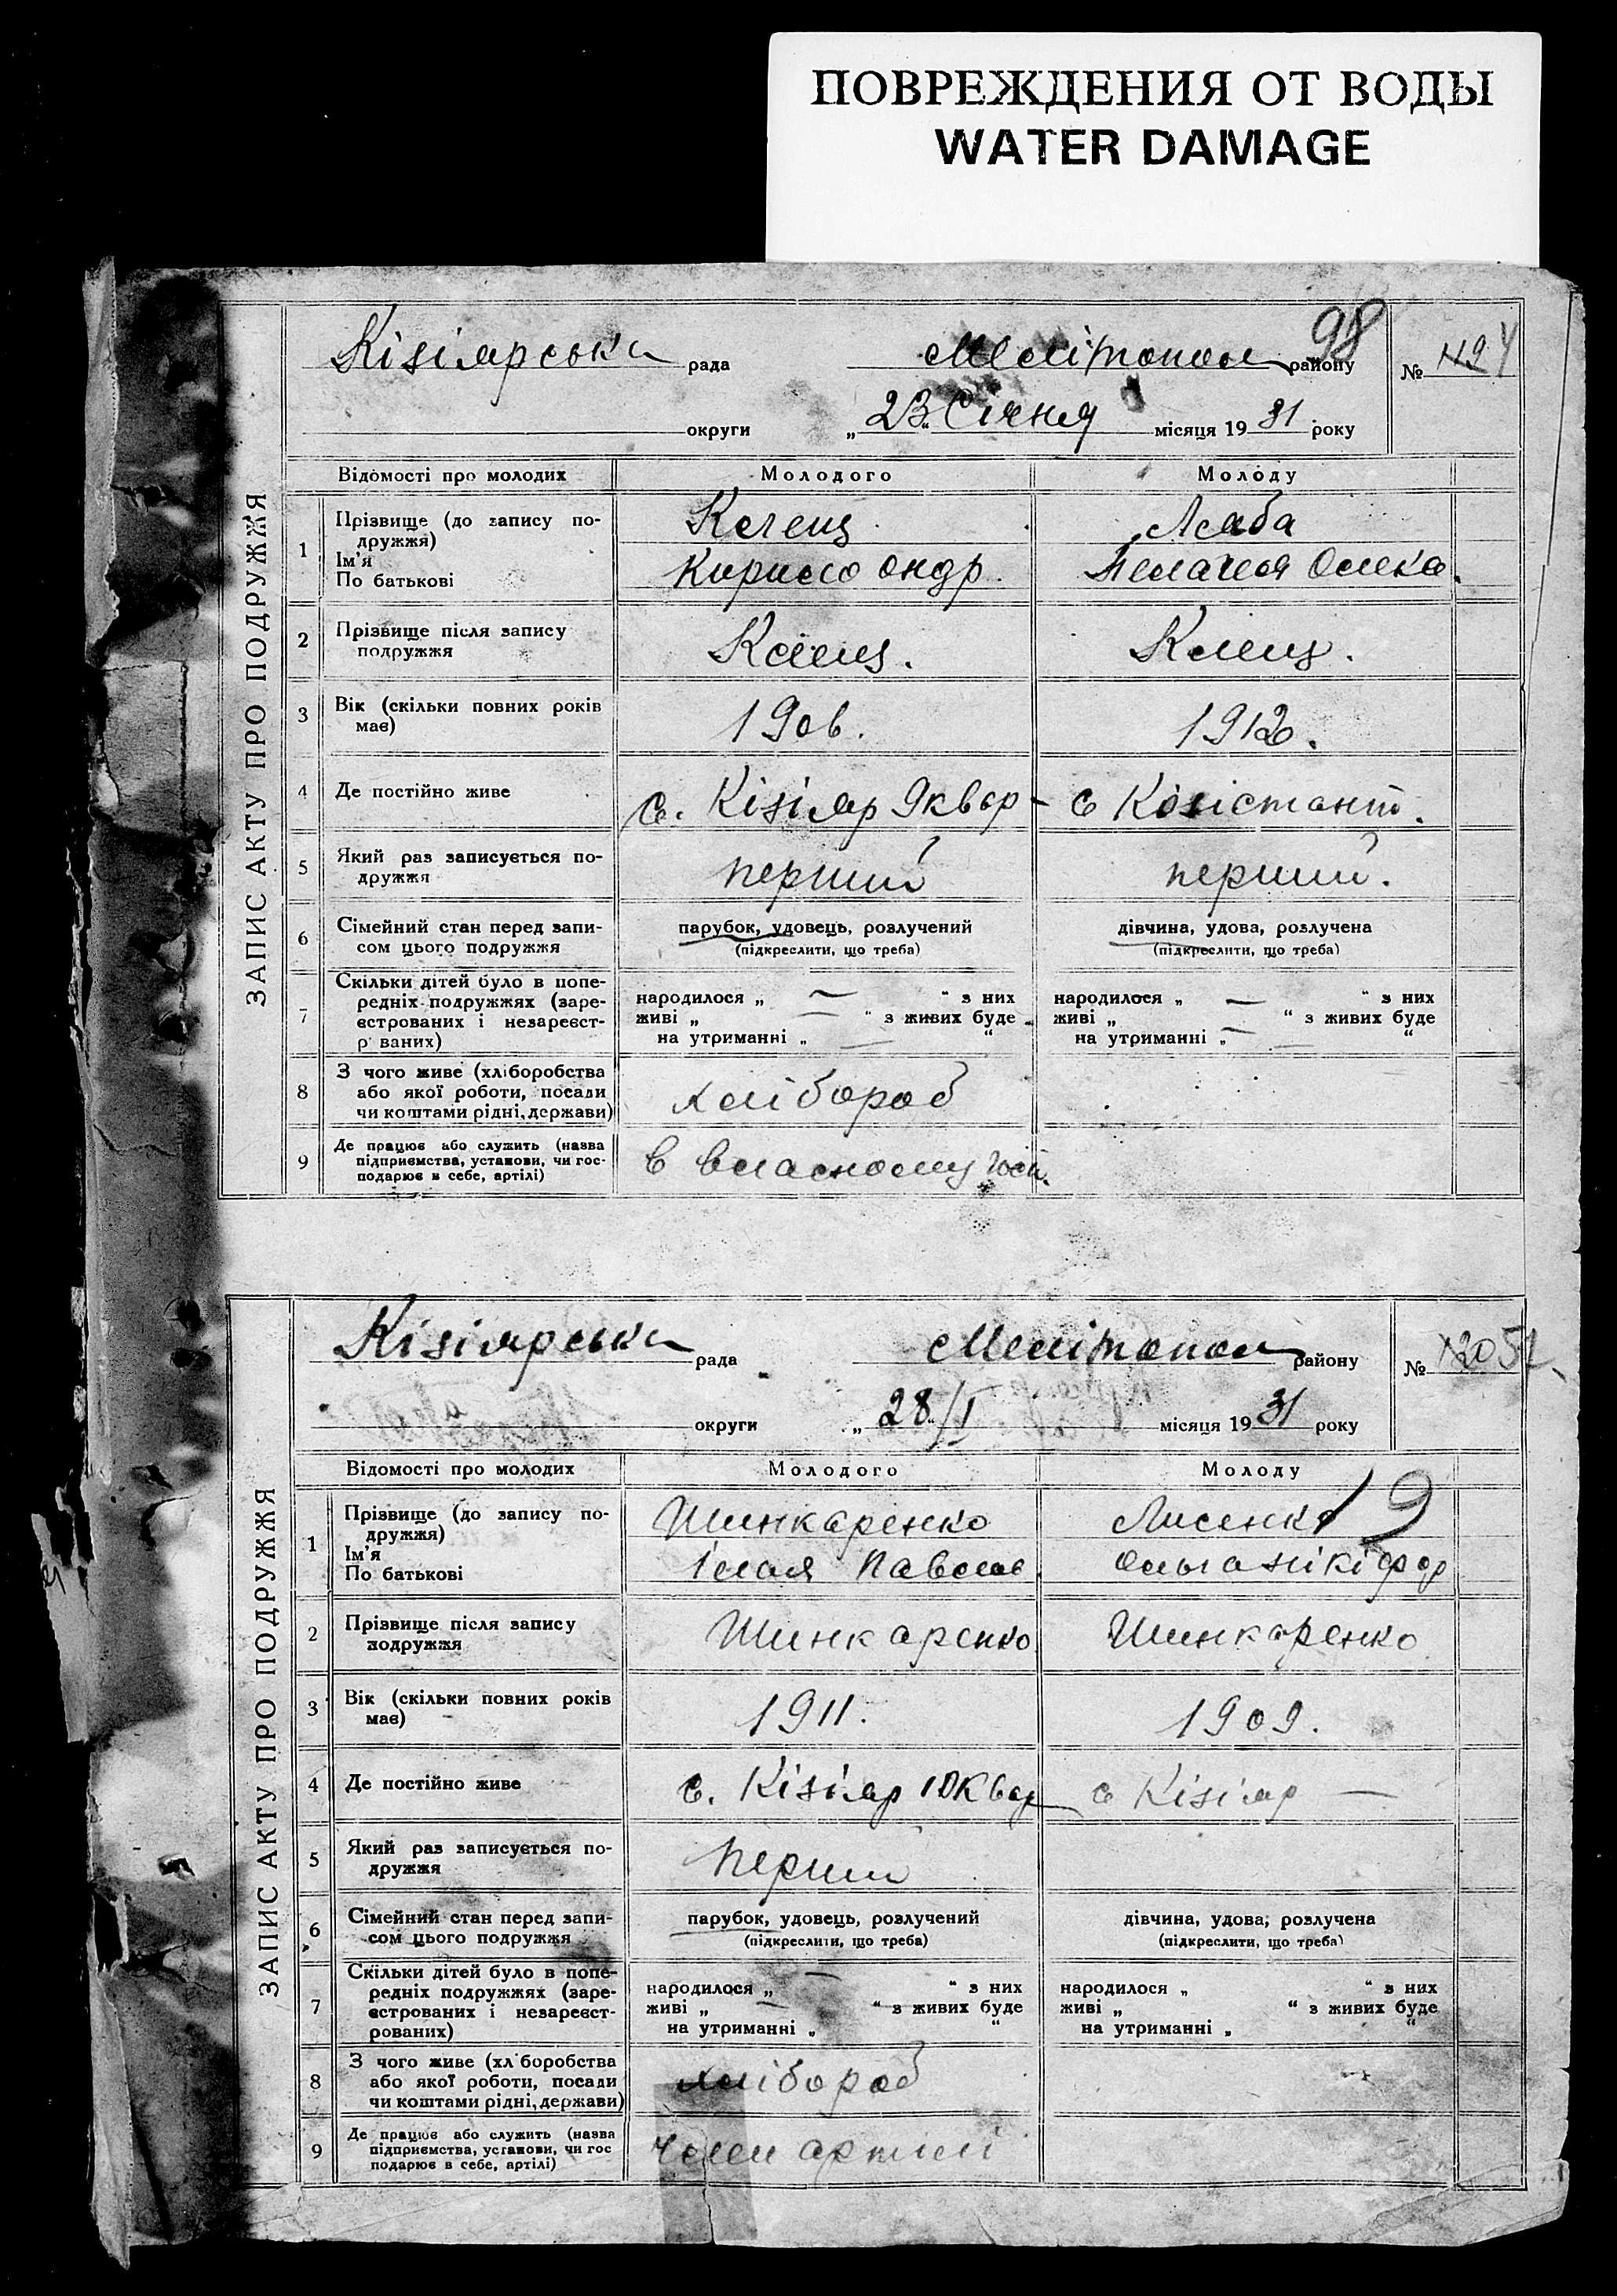 ПОВРЕЖДЕНИЯ ОТ ВОДЫ
WATER DAMAGE
98
Кізіярська рада Мелітопол району №
округи „23“ Січня місяця 1931 року
ЗАПИС АКТУ ПРО ПОДРУЖЖЯ
Відомості про молодих Молодого Молоду
1 Прізвище (до запису подружжя) Клец Лсаба
Ім'я По батькові Кирило Ондр. Пелагея Олекс.
2 Прізвище після запису подружжя Клец. Клец.
3 Вік (скільки повних років має) 1906. 1912.
4 Де постійно живе с. Кізіяр 9 квар - с Констант.
5 Який раз записується подружжя перший перший.
6 Сімейний стан перед записом цього подружжя парубок, удовець, розлучений дівчина, удова, розлучена
(підкреслити, що треба) (підкреслити, що треба)
7 Скільки дітей було в попередніх подружжях (зареєстрованих і незареєстр ваних)
народилося „ — “ з них народилося „ — “ з них
живі „ — “ з живих буде живі „ “ з живих буде
на утриманні „ — “ на утриманні „ — “
8 З чого живе (хліборобства або якої роботи, посади чи коштами рідні, держави) хлібороб
9 Де працює або служить (назва підприємства, установи, чи господарює в себе, артілі) в власному госп.
Кізіярська рада Мелітопол району №
округи „28“/I місяця 1931 року
ЗАПИС АКТУ ПРО ПОДРУЖЖЯ
Відомості про молодих Молодого Молоду
19
1 Прізвище (до запису подружжя) Шинкаренко Лисенко
Ім'я По батькові Ілля Павлов. Ольга Нікіфор
2 Прізвище після запису подружжя Шинкаренко Шинкаренко
3 Вік (скільки повних років має) 1911. 1909.
4 Де постійно живе с. Кізіяр 10 квар с Кізіяр —
5 Який раз записується подружжя перший
6 Сімейний стан перед записом цього подружжя парубок, удовець, розлучений дівчина, удова, розлучена
(підкреслити, що треба) (підкреслити, що треба)
7 Скільки дітей було в попередніх подружжях (зареєстрованих і незареєстрованих)
народилося „ — “ з них народилося „ “ з них
живі „ — “ з живих буде живі „ “ з живих буде
на утриманні „ “ на утриманні „ “
8 З чого живе (хл боробства або якої роботи, посади чи коштами рідні, держави) хлібороб
9 Де працює або служить (назва підприємства, установи, чи гос подарює в себе, артілі) член артілі